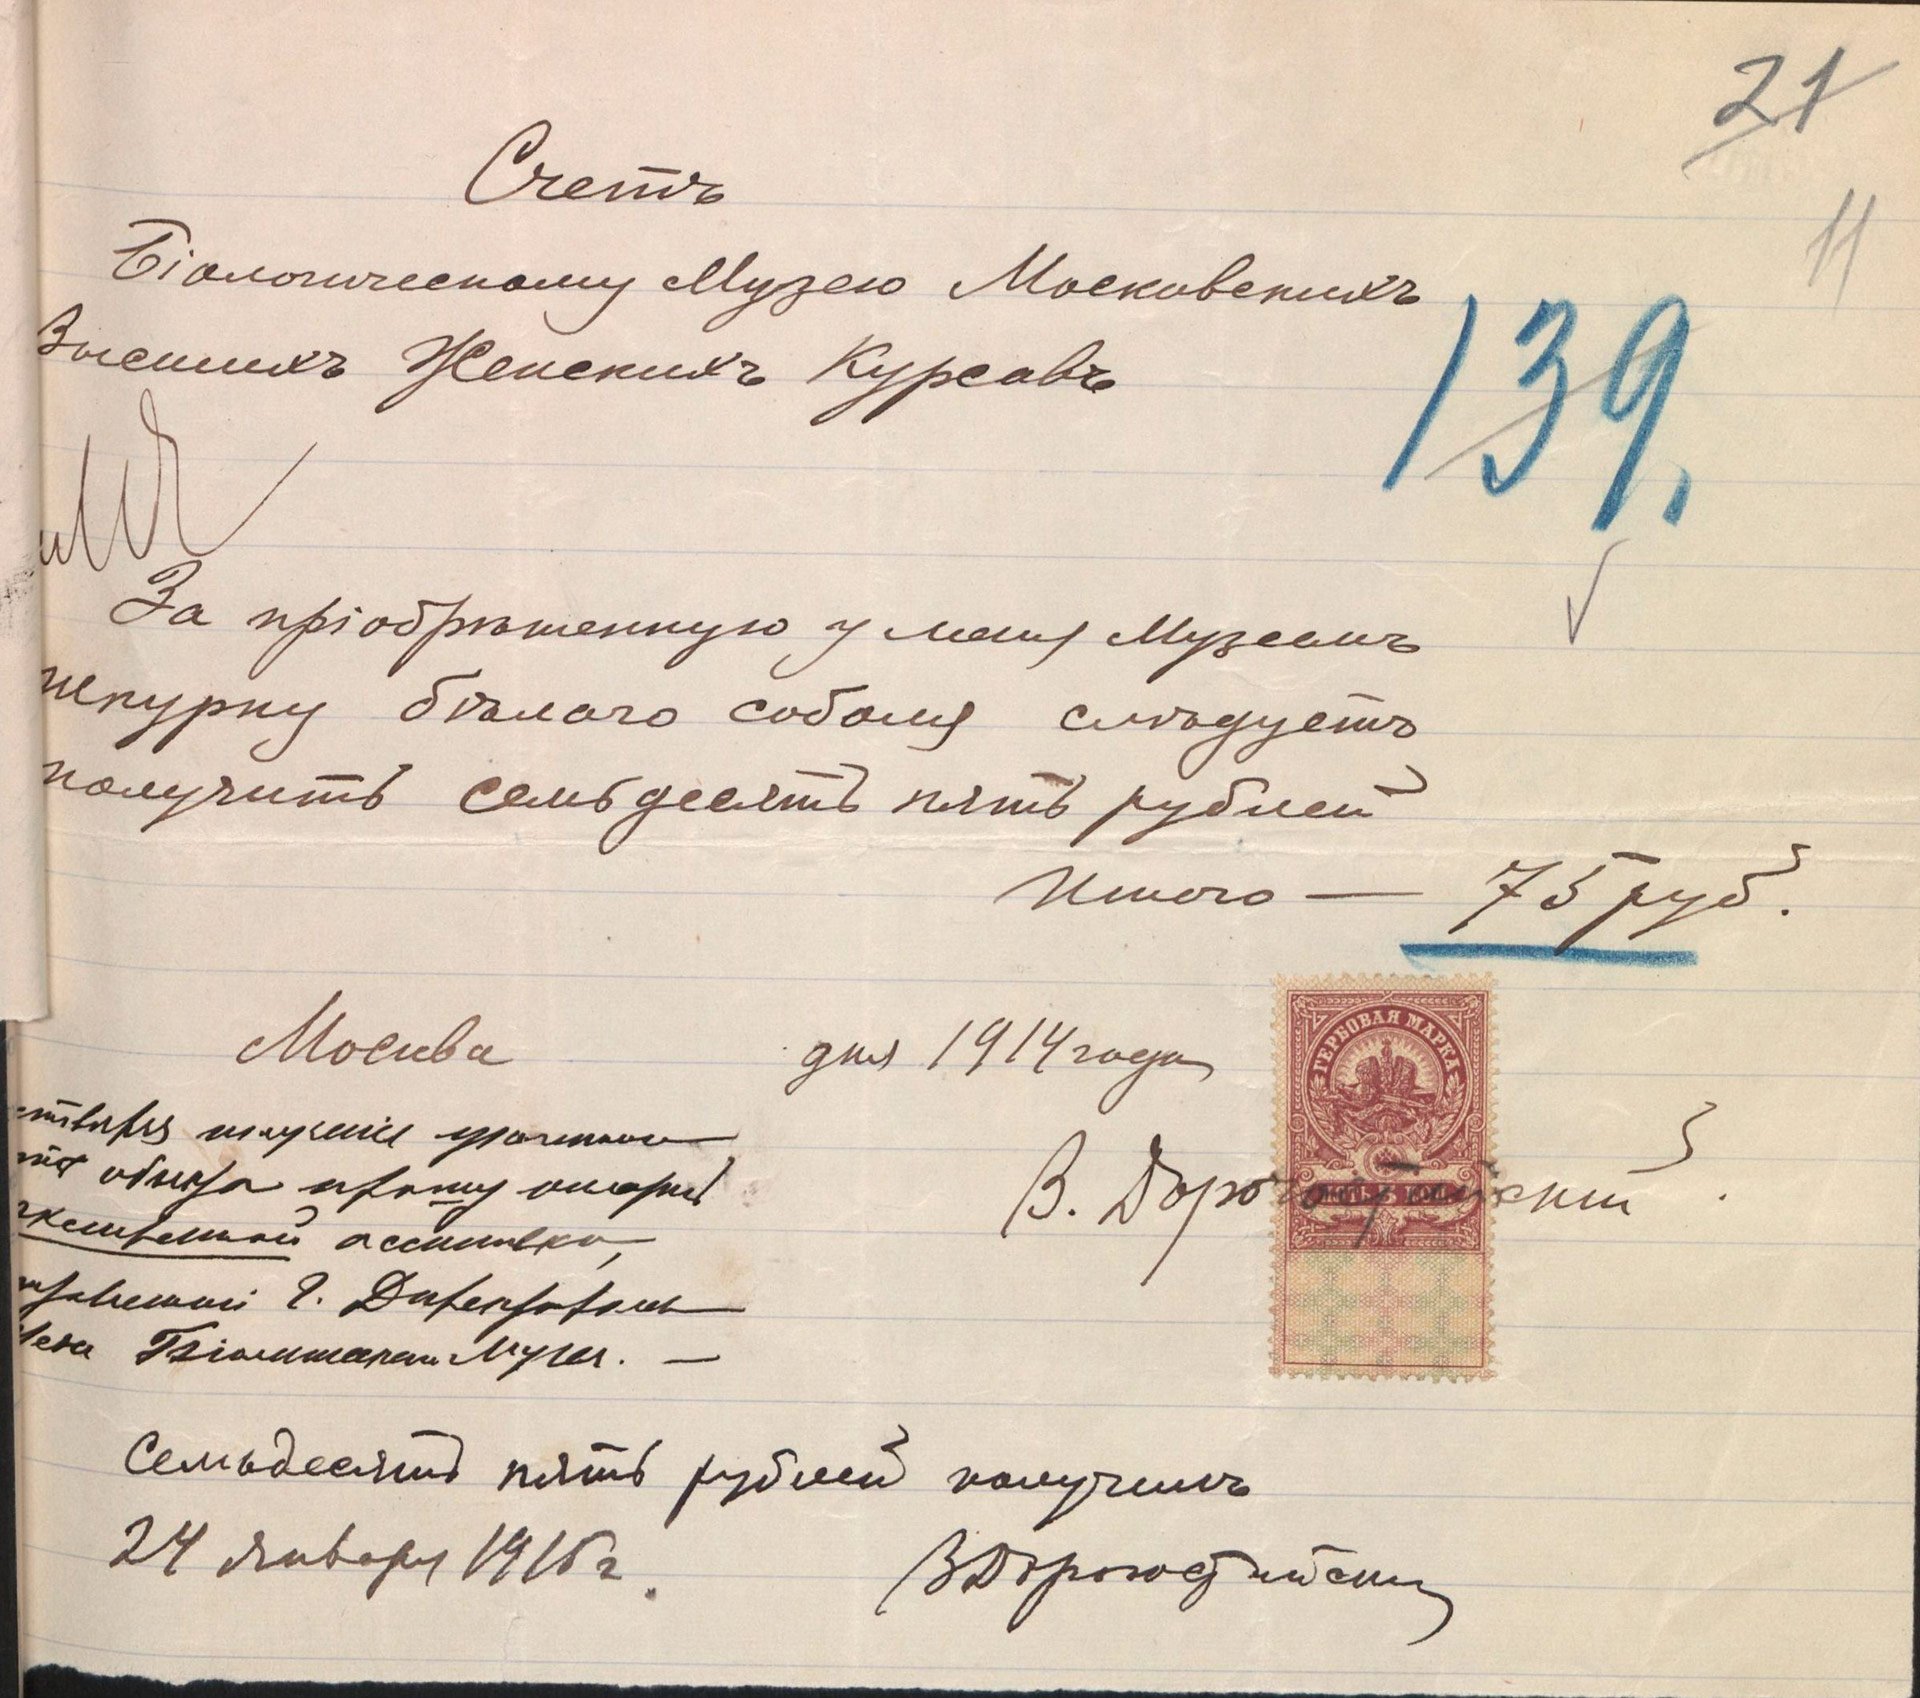 21
11
Счетъ
Біологическому Музею Московскихъ
Высшихъ Женскихъ Курсовъ
139.
За пріобрѣтенную у меня Музеемъ
шкурку бѣлаго соболя слѣдуетъ
получить семьдесятъ пять рублей
Итого — 75 руб.
Москва дня 1914 года
ГЕРБОВАЯ МАРКА
В. Дорогостайскій.
полученіе
прошу
ассигновки,
г. Директоромъ
Біологическаго Музея. —
Семьдесятъ пять рублей получилъ
24 января 1915 г.
В Дорогостайскій